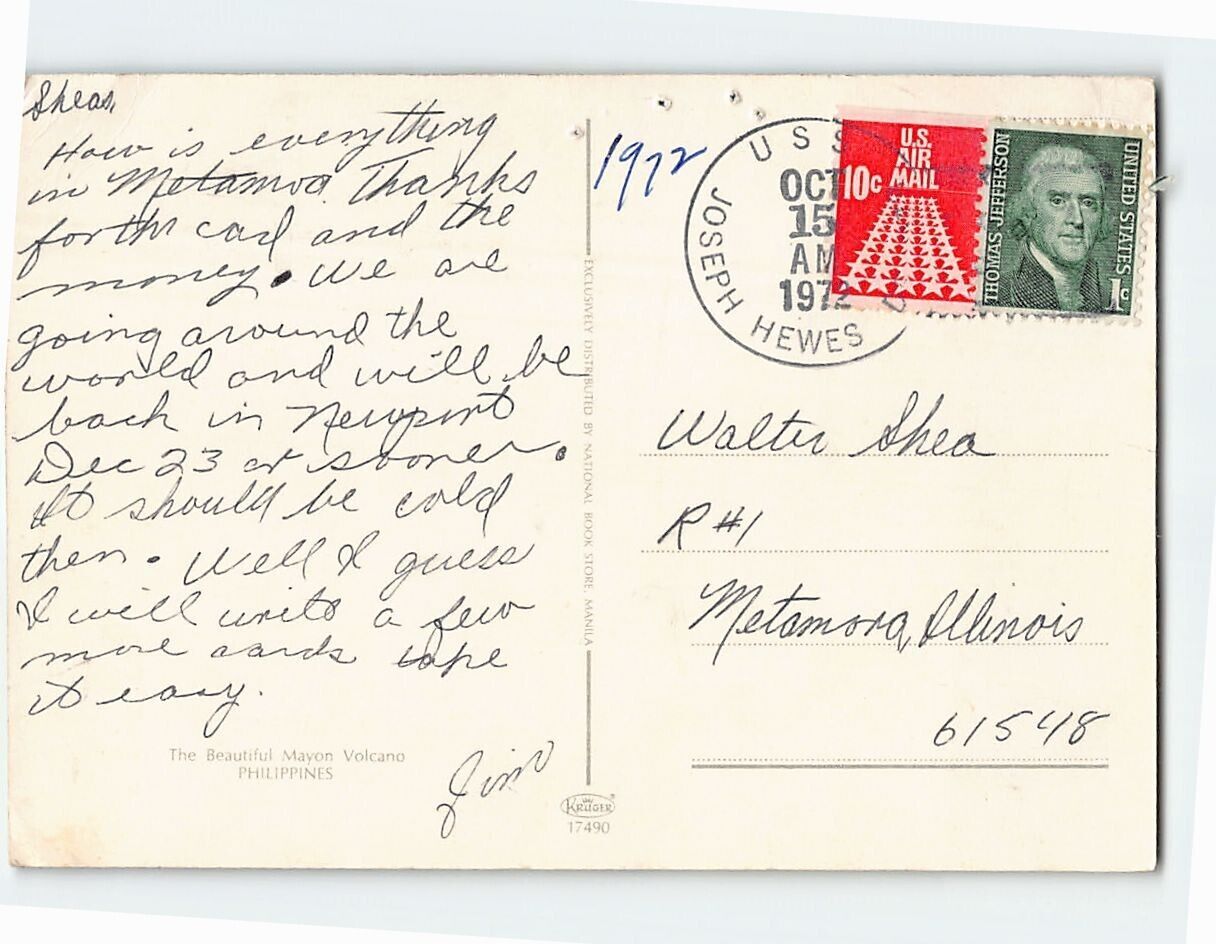 Sheas,
How is everything
in Metamora. Thanks
for the card and the
money. We are
going around the
world and will be
back in Newport
Dec 23 or sooner.
It should be cold
then. Well I guess
I will write a few
more cards take
it easy.
Jim
The Beautiful Mayon Volcano
PHILIPPINES
EXCLUSIVELY DISTRIBUTED BY NATIONAL BOOK STORE, MANILA
KRÜGER
17490
1972
USS
JOSEPH HEWES
OCT
15
AM
1972
U.S.
AIR
MAIL
10c
THOMAS JEFFERSON
UNITED STATES
1c
Walter Shea
R #1
Metamora, Illinois
61548